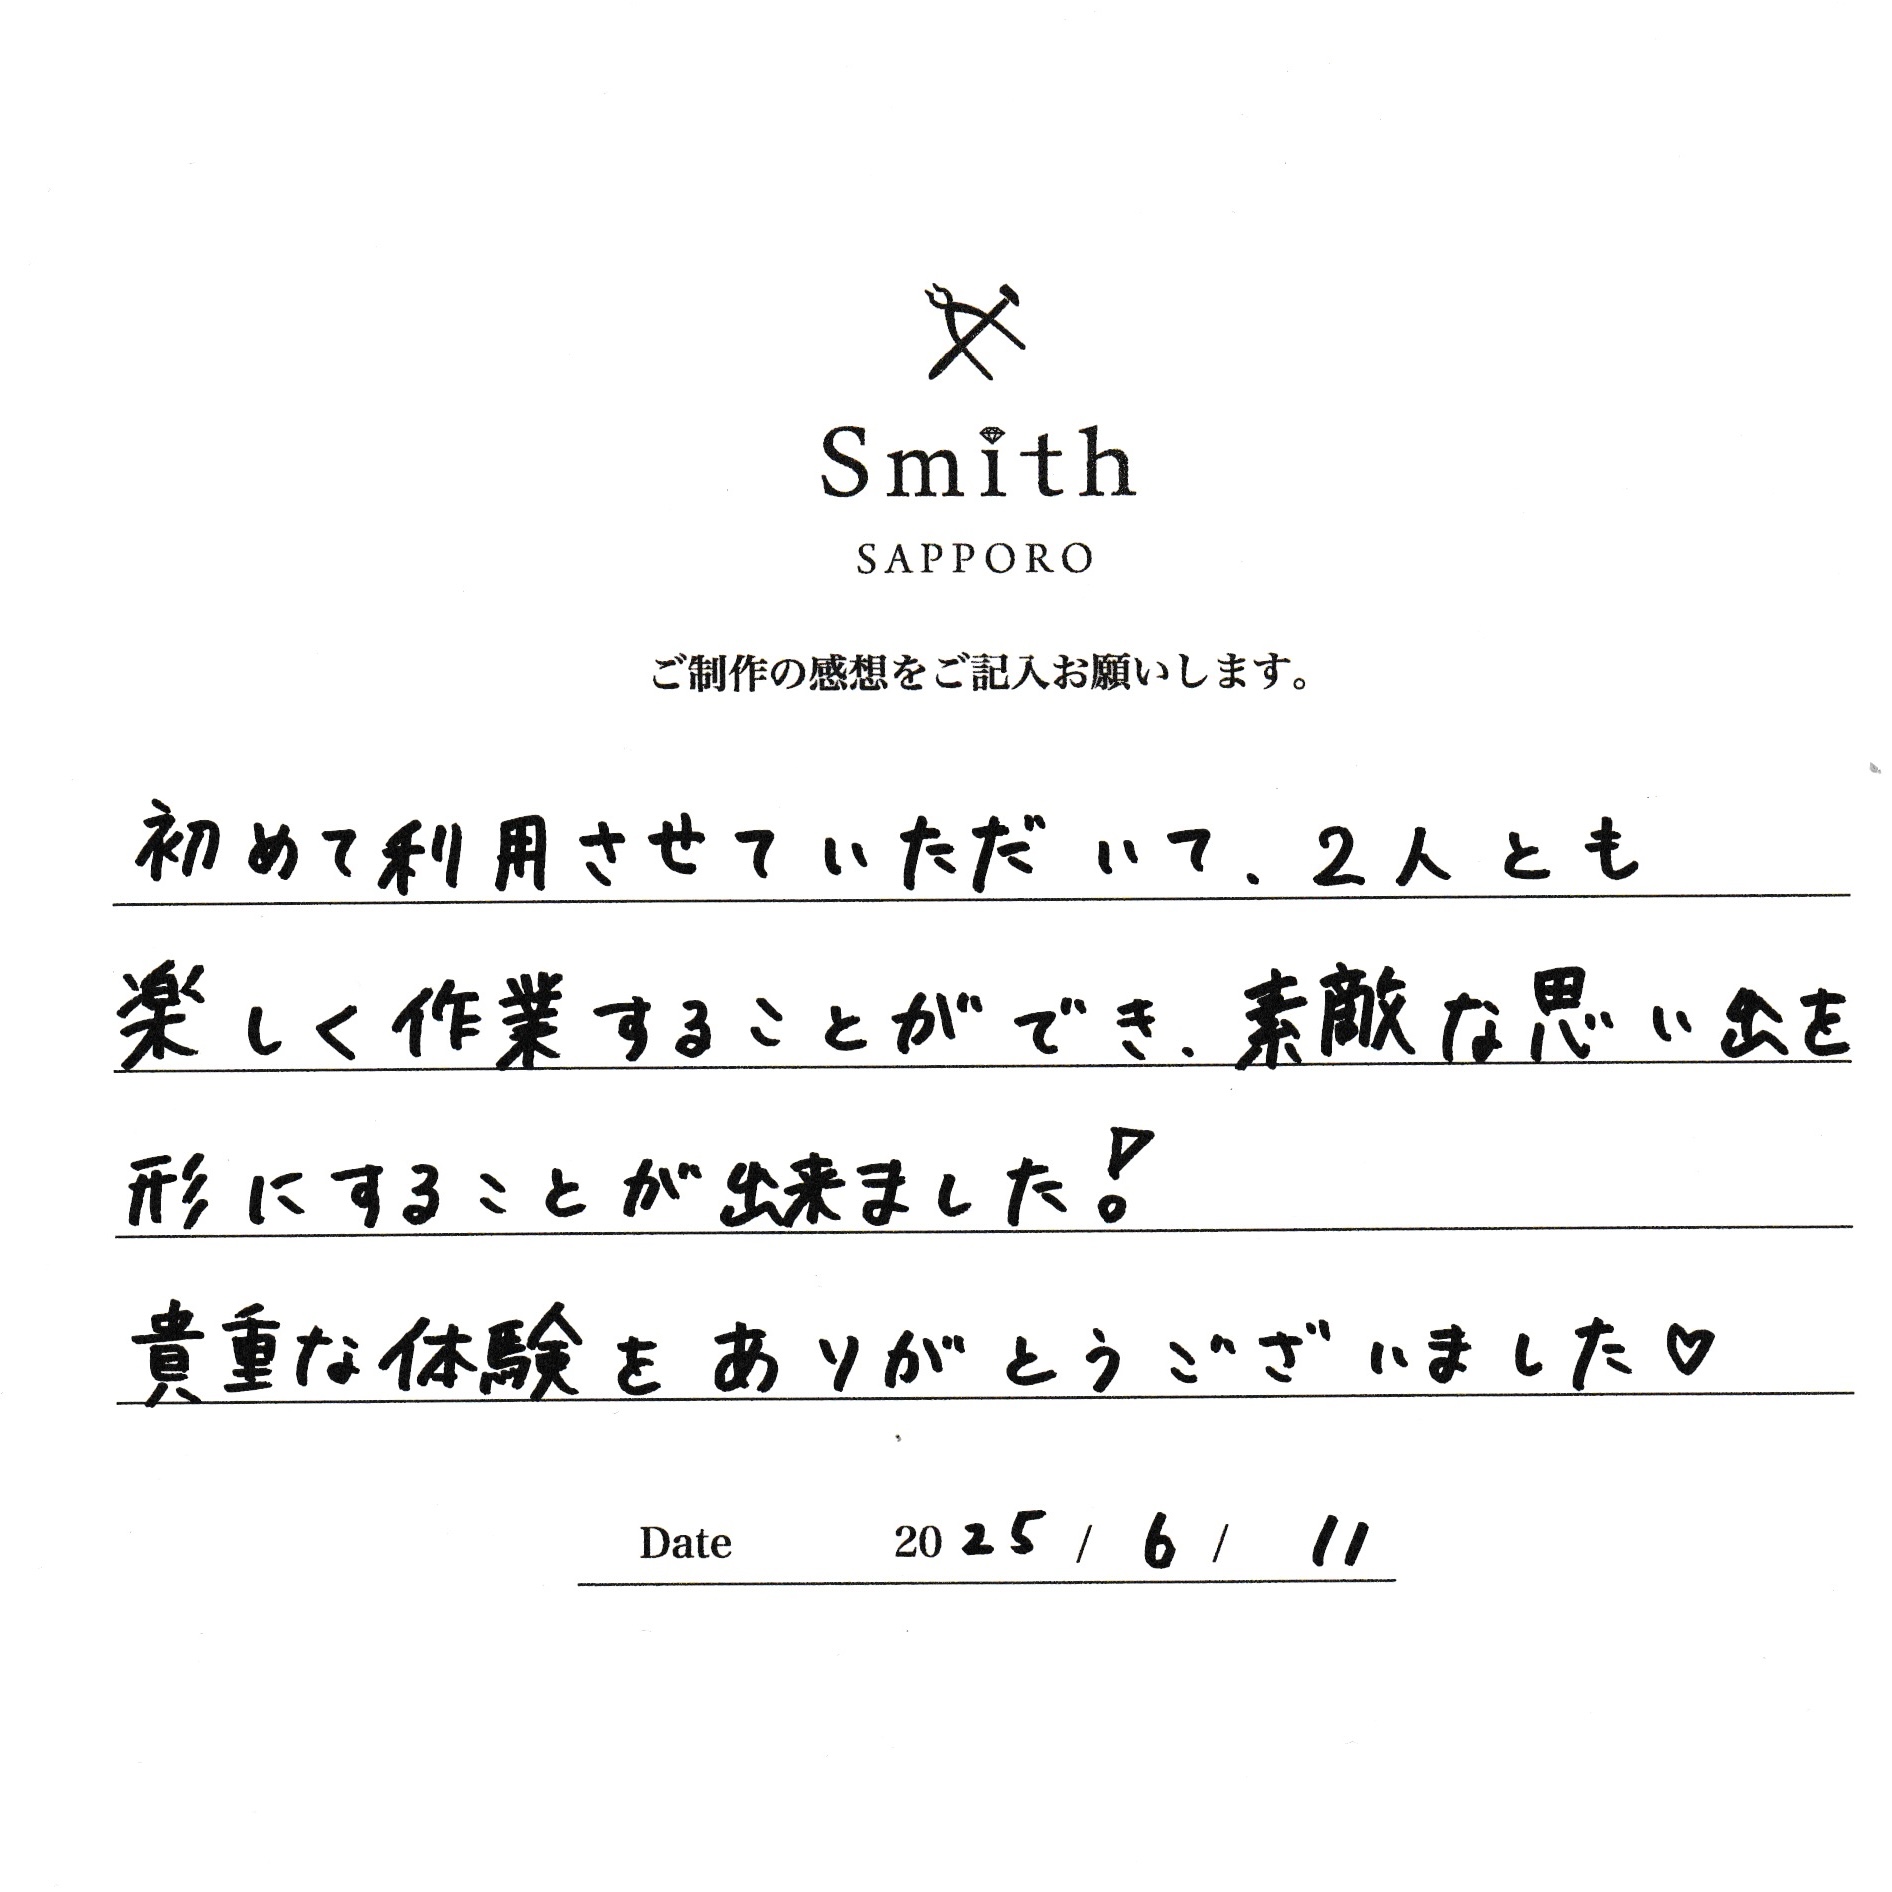 Smith
SAPPORO
ご制作の感想をご記入お願いします。
初めて利用させていただいて、2人とも
楽しく作業することができ、素敵な思い出を
形にすることが出来ました!
貴重な体験をありがとうございました♡
Date 2025 / 6 / 11